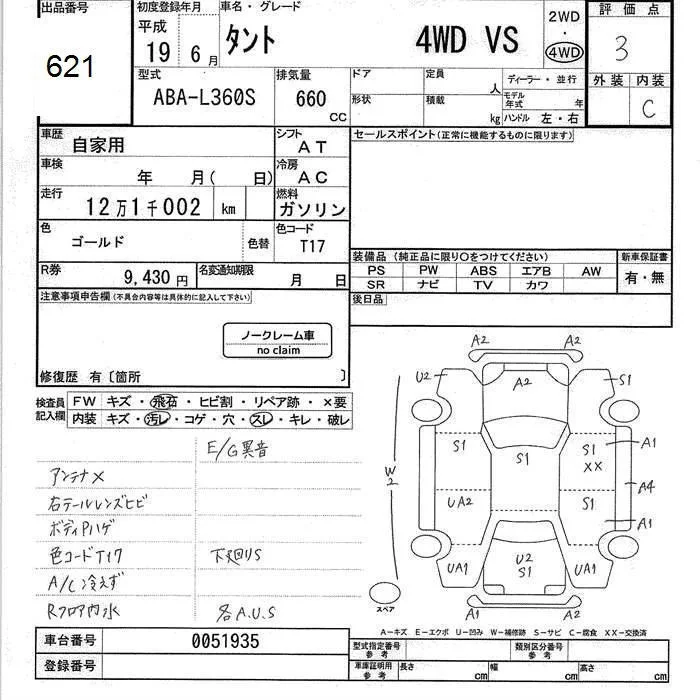 出品番号
621
初度登録年月
平成
19 6月
車名・グレード
タント 4WD VS
2WD
・
4WD
評価点
3
型式
ABA-L360S
排気量
660
CC
ドア
定員
人
ディーラー・並行
形状
積載
kg
モデル年式 年
ハンドル 左・右
外装 内装
C
車歴
自家用
シフト
AT
セールスポイント(正常に機能するものに限ります)
車検
年 月( 日)
冷房
AC
走行
12万1千002 km
燃料
ガソリン
色
ゴールド
色替
色コード
T17
装備品 (純正品に限り○をつけてください)
新車保証書
PS PW ABS エアB AW
有・無
SR ナビ TV カワ
R券
9,430円
名変通知期限
月 日
後日品
注意事項申告欄(不具合内容等は具体的に記入して下さい)
ノークレーム車
no claim
修復歴 有〔箇所 〕
検査員記入欄
FW キズ・飛石・ヒビ割・リペア跡・×要
内装 キズ・汚レ・コゲ・穴・スレ・キレ・破レ
E/G異音
アンテナX
右テールレンズヒビ
ボディPハゲ
色コードT17 下廻りS
A/C冷えず
Rフロア内水 各A.U.S
A2
A2
A2
U2
S1
S1
S1
S1
XX
A1
W2
UA2
S1
A4
A1
UA1
U2
S1
UA1
スペア
A1
A2
A-キズ E-エクボ U-凹み W-補修跡 S-サビ C-腐食 XX-交換済
車台番号
0051935
登録番号
型式指定番号
参考
類別区分番号
参考
車庫証明用
参考
長さ cm
幅 cm
高さ cm